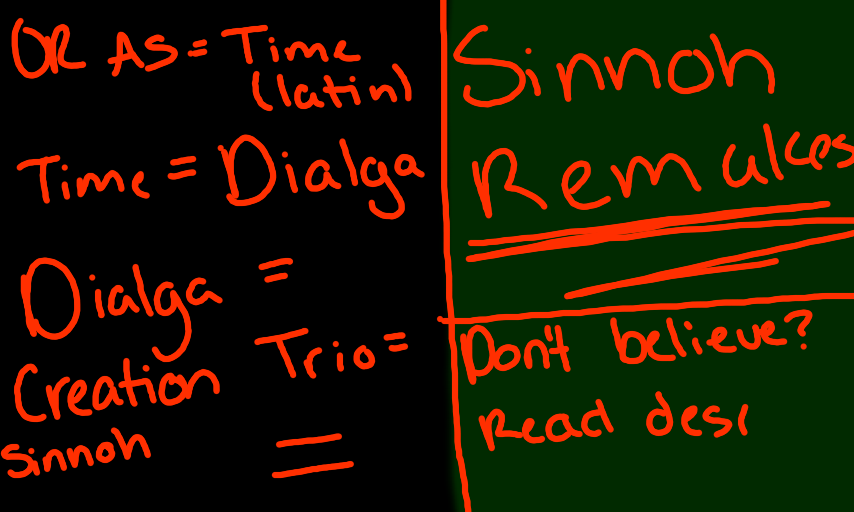 OR AS = Time
(latin)
Time = Dialga
Dialga =
Creation Trio =
Sinnoh =
Sinnoh
Remakes
Don't believe?
Read desr